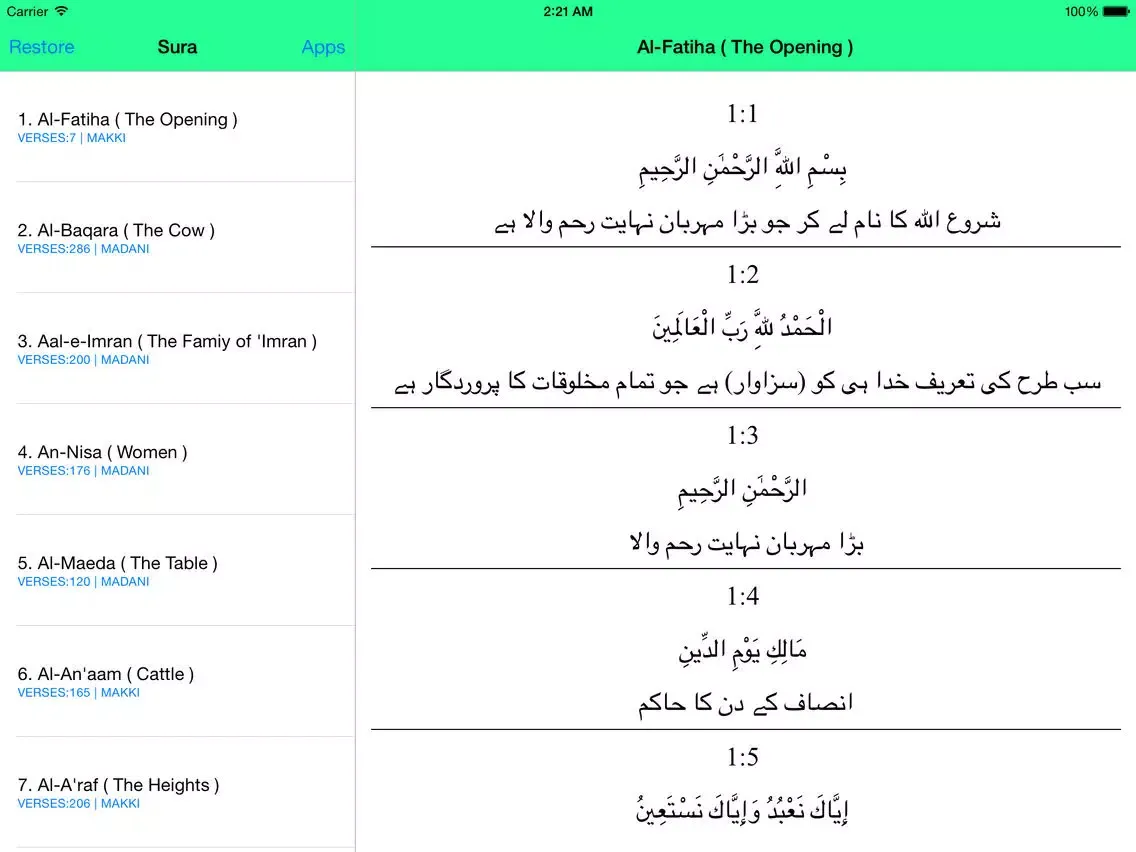 Carrier
2:21 AM
100%
Restore
Sura
Apps
Al-Fatiha ( The Opening )
1. Al-Fatiha ( The Opening )
VERSES:7 | MAKKI
2. Al-Baqara ( The Cow )
VERSES:286 | MADANI
3. Aal-e-Imran ( The Famiy of 'Imran )
VERSES:200 | MADANI
4. An-Nisa ( Women )
VERSES:176 | MADANI
5. Al-Maeda ( The Table )
VERSES:120 | MADANI
6. Al-An'aam ( Cattle )
VERSES:165 | MAKKI
7. Al-A'raf ( The Heights )
VERSES:206 | MAKKI
1:1
بِسْمِ اللَّهِ الرَّحْمَٰنِ الرَّحِيمِ
شروع الله کا نام لے کر جو بڑا مہربان نہایت رحم والا ہے
1:2
الْحَمْدُ لِلَّهِ رَبِّ الْعَالَمِينَ
سب طرح کی تعریف خدا ہی کو (سزاوار) ہے جو تمام مخلوقات کا پروردگار ہے
1:3
الرَّحْمَٰنِ الرَّحِيمِ
بڑا مہربان نہایت رحم والا
1:4
مَالِكِ يَوْمِ الدِّينِ
انصاف کے دن کا حاکم
1:5
إِيَّاكَ نَعْبُدُ وَإِيَّاكَ نَسْتَعِينُ